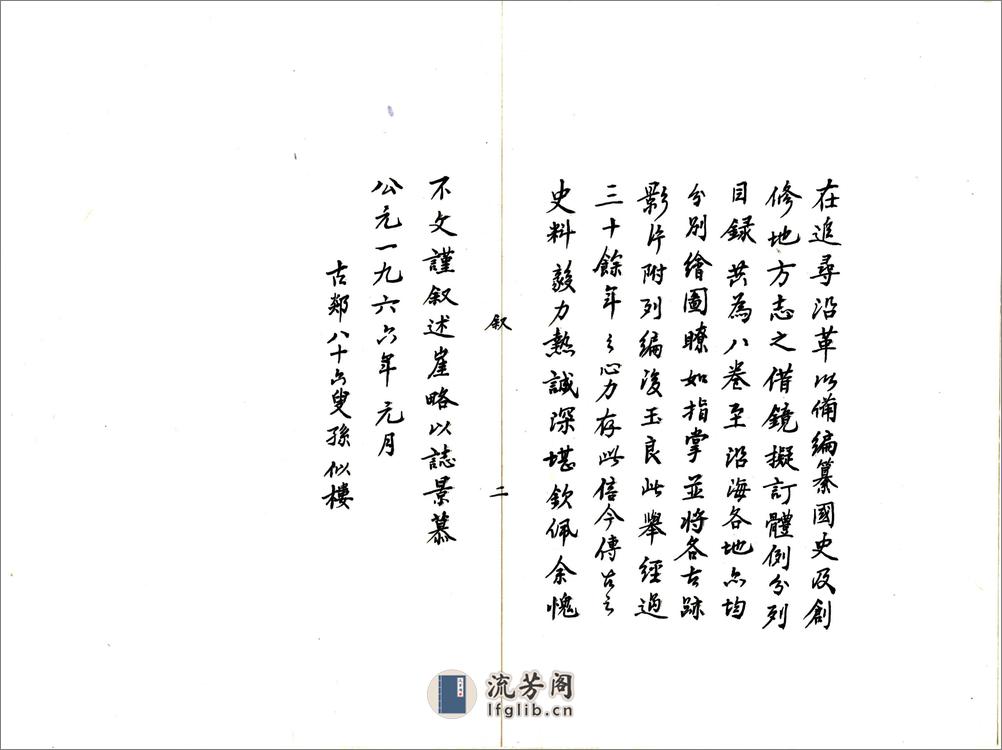 在追尋沿革以備編纂國史及創
修地方志之借鏡擬訂體例分列
目録共為八卷至沿海各地亦均
分別繪圖瞭如指掌並將各古跡
影片附列編後玉良此舉經過
三十餘年之心力存此信今傳古之
史料毅力熱誠深堪欽佩余愧
叙
二
不文謹叙述崖略以誌景慕
公元一九六六年元月
古鄰八十六叟孫似樓
流芳阁
lfglib.cn